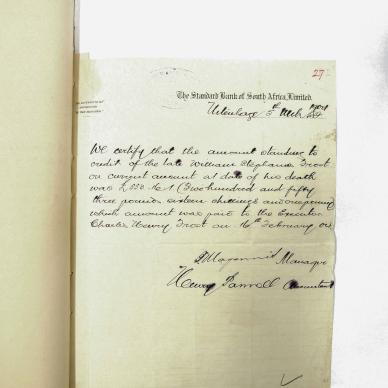 27
The Standard Bank of South Africa, Limited.
Uitenhage 5th Mch
We certify that the amount standing to
credit of the late William Stephanus Troost
on current amount at date of his death
was £253.16.1 (Two hundred and fifty
three pounds sixteen shillings and one penny
which amount was paid to the Executor
Charles Henry Troost on 16th February
Manager
Henry Accountant